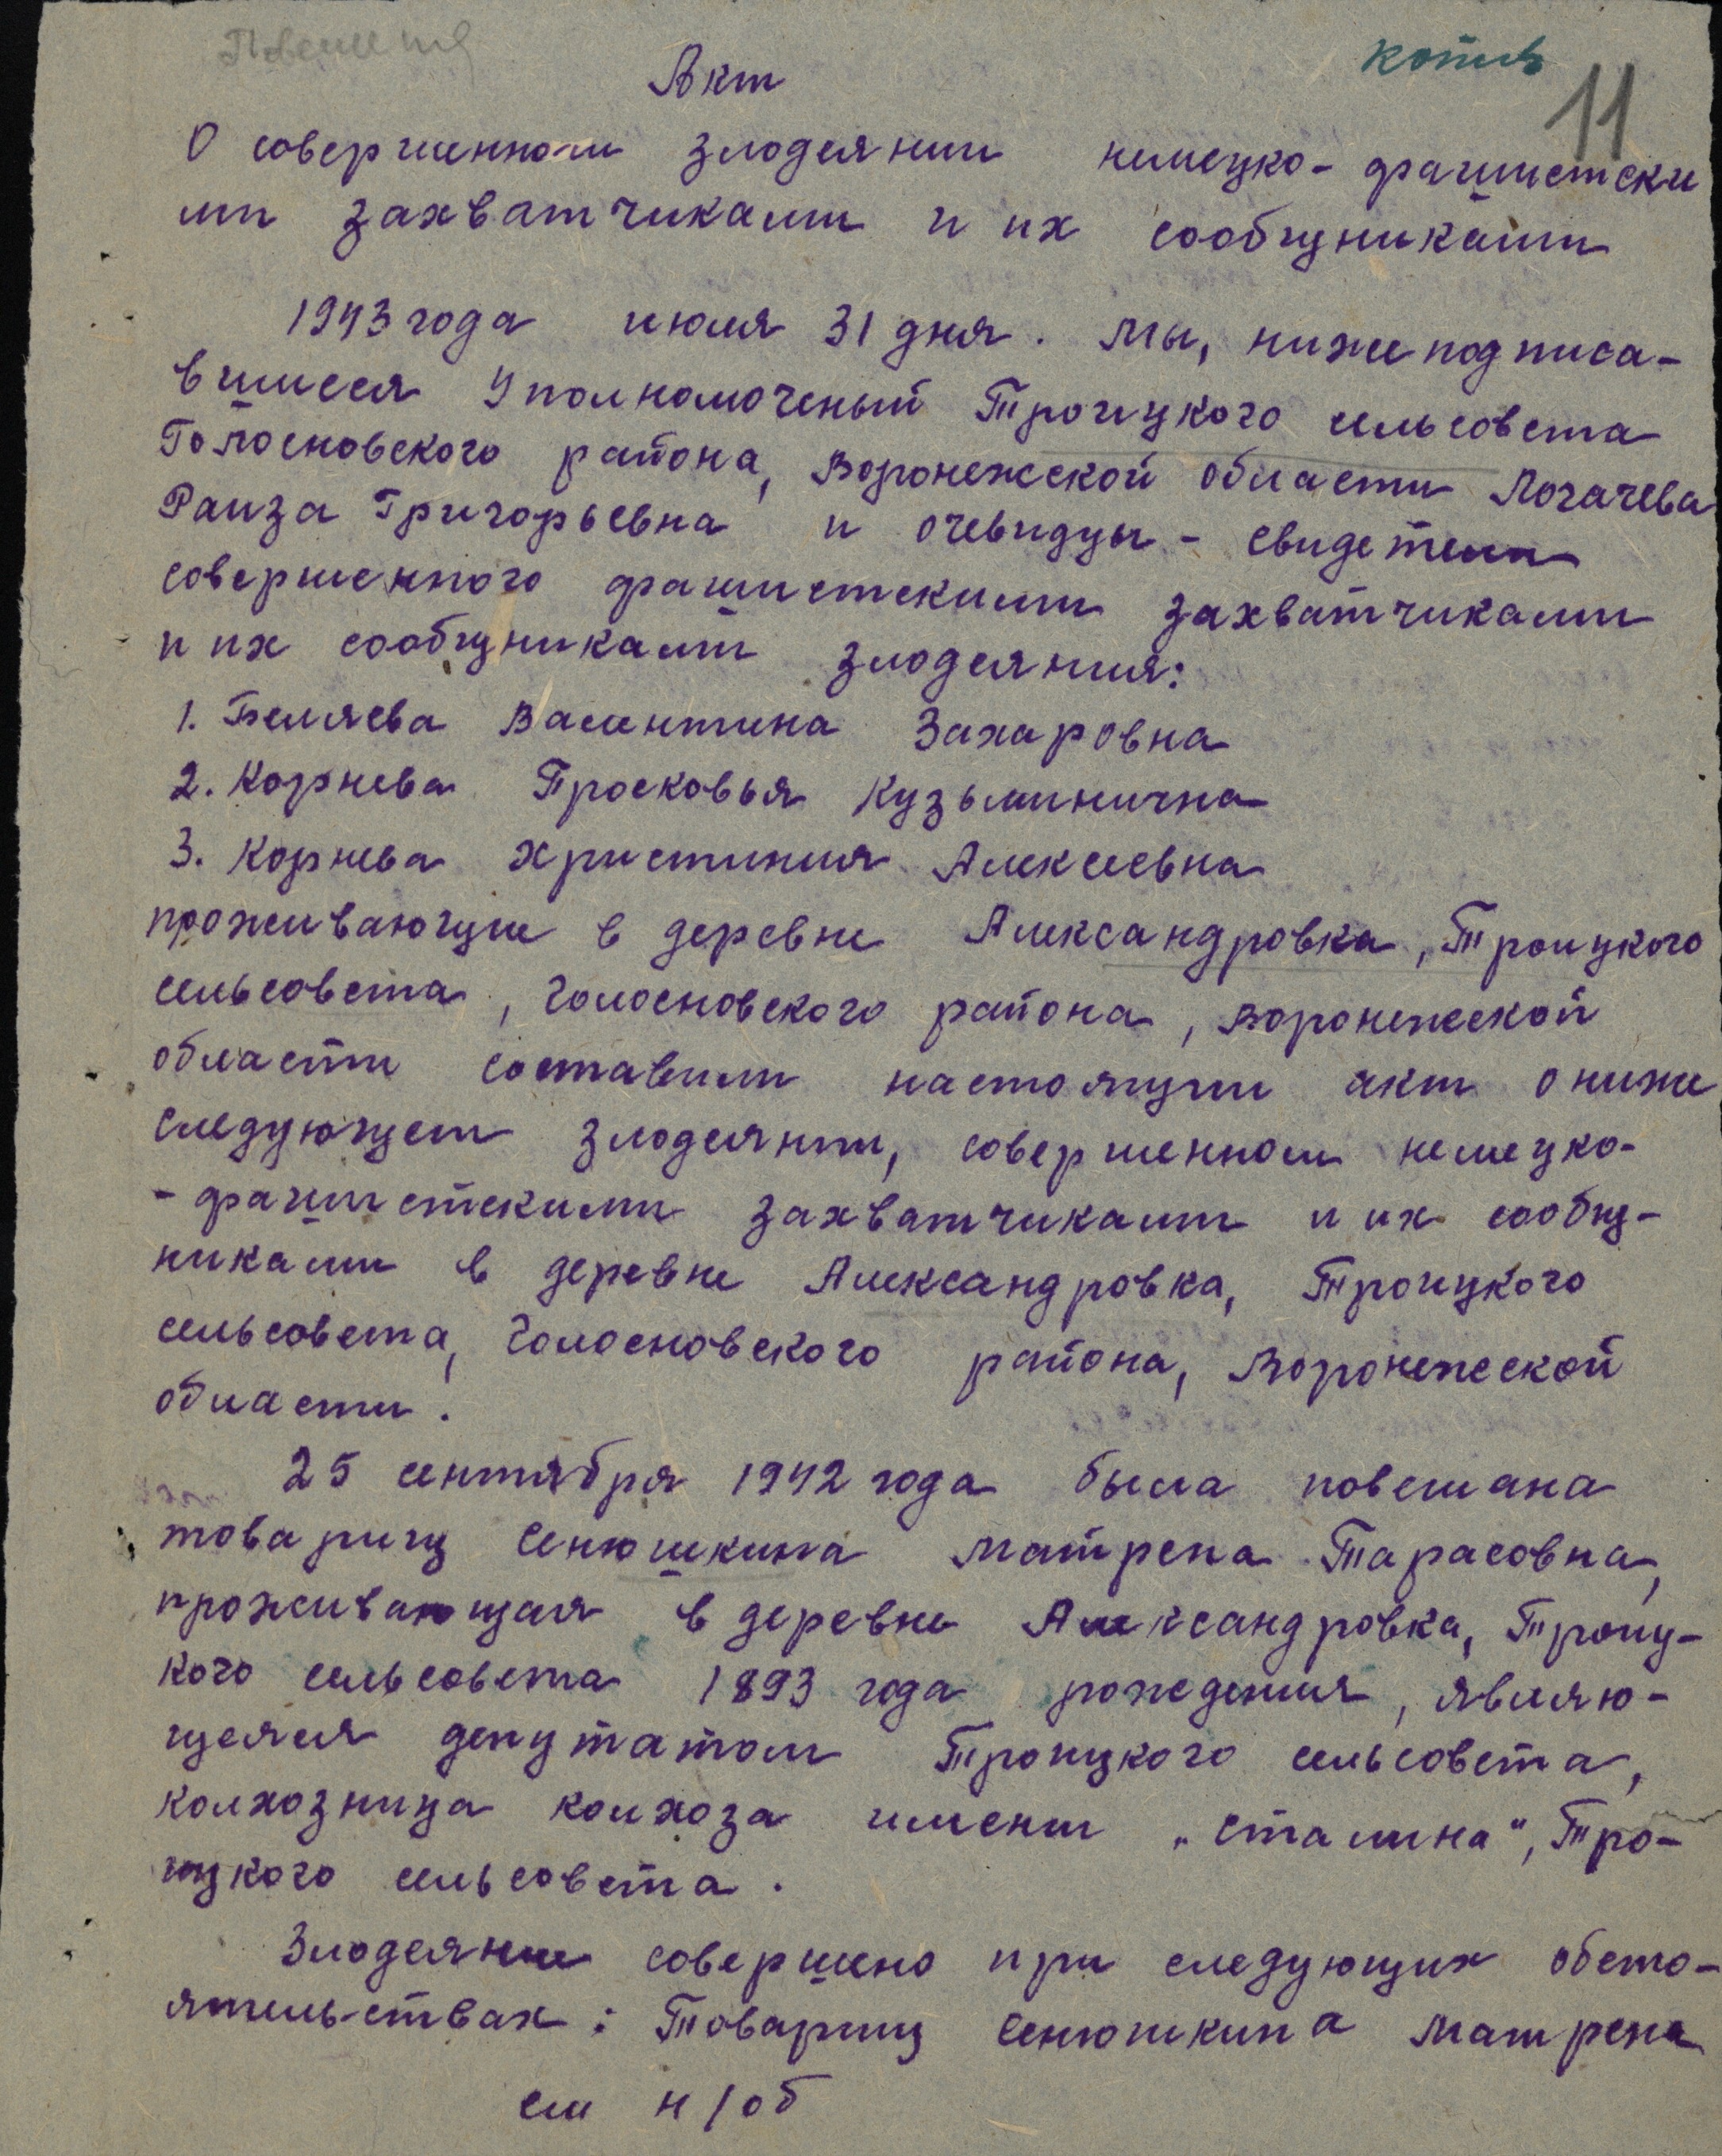 копия
11
Акт
О совершенном злодеянии немецко-фашистски
ми захватчиками и их сообщниками
1943 года июля 31 дня. Мы, нижеподписа-
вшиеся Уполномоченый Троицкого сельсовета
Голосновского района, Воронежской области Логачева
Раиза Григорьевна и очевидцы - свидетели
совершенного фашистскими захватчиками
и их сообщниками злодеяния:
1. Беляева Валентина Захаровна
2. Корнева Просковья Кузьминична
3. Корнева Христиния Алексеевна
проживающие в деревне Александровка, Троицкого
сельсовета, Голосновского района, Воронежской
области составили настоящии акт о ниже
следующем злодеянии, совершенном немецко-
- фашистскими захватчиками и их сообщ-
никами в деревне Александровка, Троицкого
сельсовета, Голосновского района, Воронежской
области.
25 сентября 1942 года была повешана
товарищ Сенюшкина Матрена Тарасовна,
проживающая в деревне Александровка, Троиц-
кого сельсовета 1893 года рождения, являю-
щеяся депутатом Троицкого сельсовета,
колхозница колхоза имени „Сталина", Тро-
ицкого сельсовета.
Злодеяние совершено при следующих обсто-
ятельствах: Товарищ Сенюшкина Матрена
см н/об